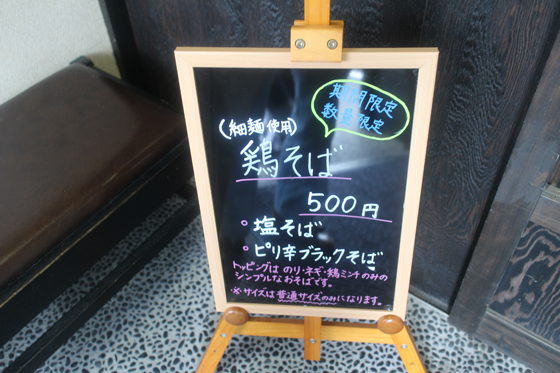 期間限定
数量限定
(細麺使用)
鶏そば
500円
。塩そば
。ピリ辛ブラックそば
トッピングは のり・ネギ・鶏ミンチのみの
シンプルなおそばです。
※サイズは普通サイズのみになります。